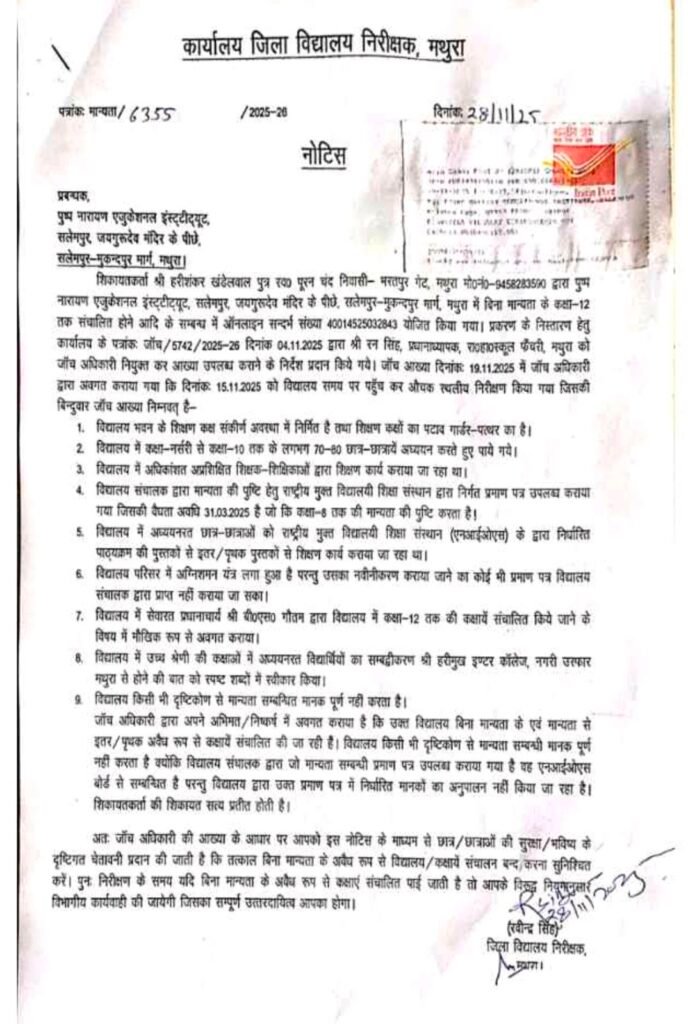 कार्यालय जिला विद्यालय निरीक्षक, मथुरा
पत्रांकः मान्यता/6355 /2025-26 दिनांकः 28/11/25
नोटिस
India Post
प्रबन्धक,
पुष्प नारायण एजुकेशनल इंस्टीट्यूट,
सलेमपुर, जयगुरूदेव मंदिर के पीछे,
सलेमपुर-मुकन्दपुर मार्ग, मथुरा।
शिकायतकर्ता श्री हरीशंकर खंडेलवाल पुत्र स्व0 पूरन चंद निवासी- भरतपुर गेट, मथुरा मो0नं0-9458283590 द्वारा पुष्प
नारायण एजुकेशनल इंस्टीट्यूट, सलेमपुर, जयगुरूदेव मंदिर के पीछे, सलेमपुर-मुकन्दपुर मार्ग, मथुरा में बिना मान्यता के कक्षा-12
तक संचालित होने आदि के सम्बन्ध में ऑनलाइन सन्दर्भ संख्या 40014525032843 योजित किया गया। प्रकरण के निस्तारण हेतु
कार्यालय के पत्रांकः जाँच/5742/2025-26 दिनांक 04.11.2025 द्वारा श्री रन सिंह, प्रधानाध्यापक, रा0हा0स्कूल फैंचरी, मथुरा को
जाँच अधिकारी नियुक्त कर आख्या उपलब्ध कराने के निर्देश प्रदान किये गये। जाँच आख्या दिनांकः 19.11.2025 में जाँच अधिकारी
द्वारा अवगत कराया गया कि दिनांकः 15.11.2025 को विद्यालय समय पर पहुँच कर औचक स्थलीय निरीक्षण किया गया जिसकी
बिन्दुवार जाँच आख्या निम्नवत् है-
1. विद्यालय भवन के शिक्षण कक्ष संकीर्ण अवस्था में निर्मित है तथा शिक्षण कक्षों का पटाव गार्डर-पत्थर का है।
2. विद्यालय में कक्षा-नर्सरी से कक्षा-10 तक के लगभग 70-80 छात्र-छात्रायें अध्ययन करते हुए पाये गये।
3. विद्यालय में अधिकांशत अप्रशिक्षित शिक्षक-शिक्षिकाओं द्वारा शिक्षण कार्य कराया जा रहा था।
4. विद्यालय संचालक द्वारा मान्यता की पुष्टि हेतु राष्ट्रीय मुक्त विद्यालयी शिक्षा संस्थान द्वारा निर्गत प्रमाण पत्र उपलब्ध कराया
गया जिसकी वैधता अवधि 31.03.2025 है जो कि कक्षा-8 तक की मान्यता की पुष्टि करता है।
5. विद्यालय में अध्ययनरत छात्र-छात्राओं को राष्ट्रीय मुक्त विद्यालयी शिक्षा संस्थान (एनआईओएस) के द्वारा निर्धारित
पाठ्यक्रम की पुस्तकों से इतर/पृथक पुस्तकों से शिक्षण कार्य कराया जा रहा था।
6. विद्यालय परिसर में अग्निशमन यंत्र लगा हुआ है परन्तु उसका नवीनीकरण कराया जाने का कोई भी प्रमाण पत्र विद्यालय
संचालक द्वारा प्राप्त नहीं कराया जा सका।
7. विद्यालय में सेवारत प्रधानाचार्य श्री बी0एस0 गौतम द्वारा विद्यालय में कक्षा-12 तक की कक्षायें संचालित किये जाने के
विषय में मौखिक रूप से अवगत कराया।
8. विद्यालय में उच्च श्रेणी की कक्षाओं में अध्ययनरत विद्यार्थियों का सम्बद्धीकरण श्री हरीमुख इण्टर कॉलेज, नगरी उस्फार
मथुरा से होने की बात को स्पष्ट शब्दों में स्वीकार किया।
9. विद्यालय किसी भी दृष्टिकोण से मान्यता सम्बन्धित मानक पूर्ण नहीं करता है।
जाँच अधिकारी द्वारा अपने अभिमत/निष्कर्ष में अवगत कराया है कि उक्त विद्यालय बिना मान्यता के एवं मान्यता से
इतर/पृथक अवैध रूप से कक्षायें संचालित की जा रही है। विद्यालय किसी भी दृष्टिकोण से मान्यता सम्बन्धी मानक पूर्ण
नहीं करता है क्योंकि विद्यालय संचालक द्वारा जो मान्यता सम्बन्धी प्रमाण पत्र उपलब्ध कराया गया है वह एनआईओएस
बोर्ड से सम्बन्धित है परन्तु विद्यालय द्वारा उक्त प्रमाण पत्र में निर्धारित मानकों का अनुपालन नहीं किया जा रहा है।
शिकायतकर्ता की शिकायत सत्य प्रतीत होती है।
अतः जाँच अधिकारी की आख्या के आधार पर आपको इस नोटिस के माध्यम से छात्र/छात्राओं की सुरक्षा/भविष्य के
दृष्टिगत चेतावनी प्रदान की जाती है कि तत्काल बिना मान्यता के अवैध रूप से विद्यालय/कक्षायें संचालन बन्द करना सुनिश्चित
करें। पुनः निरीक्षण के समय यदि बिना मान्यता के अवैध रूप से कक्षाएं संचालित पाई जाती है तो आपके विरूद्ध नियमानुसार
विभागीय कार्यवाही की जायेगी जिसका सम्पूर्ण उत्तरदायित्व आपका होगा।
28/11/2025
(रवीन्द्र सिंह)
जिला विद्यालय निरीक्षक,
मथुरा।